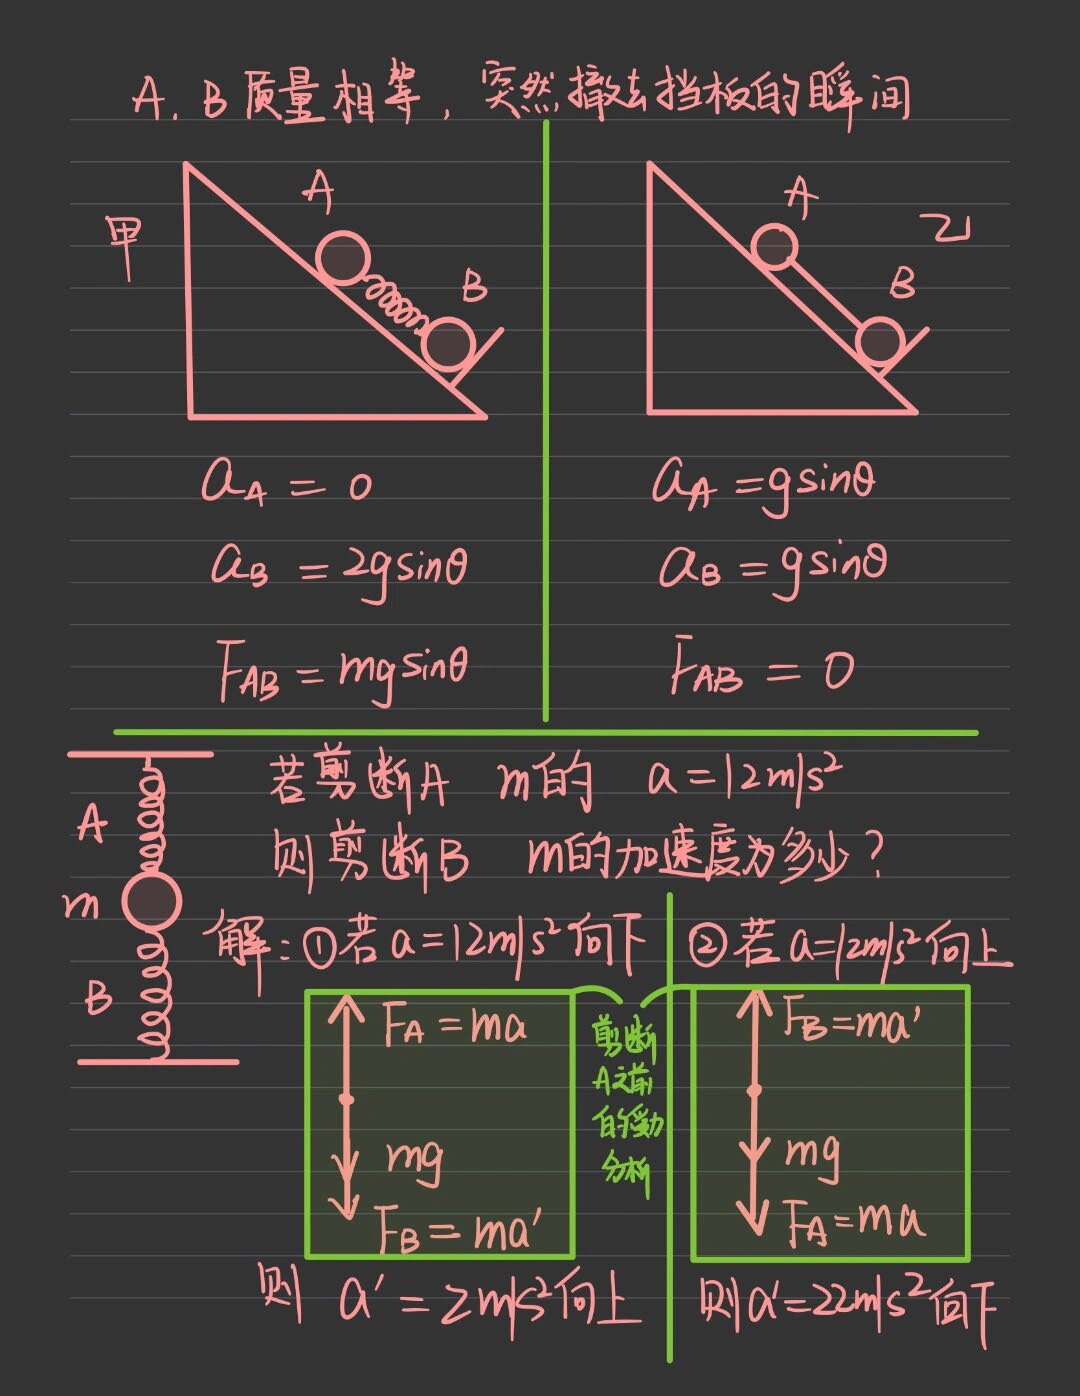 A. B质量相等, 突然撤去挡板的瞬间
甲
A
B
a_A = 0
a_B = 2gsinθ
F_AB = mgsinθ
A
乙
B
a_A = gsinθ
a_B = gsinθ
F_AB = 0
A
m
B
若剪断A m的 a=12m/s²
则剪断B m的加速度为多少?
解: ①若a=12m/s²向下
F_A = ma
mg
F_B = ma'
则 a' = 2m/s²向上
剪断
A之前
的受力
分析
②若a=12m/s²向上
F_B=ma'
mg
F_A=ma
则a'=22m/s²向下